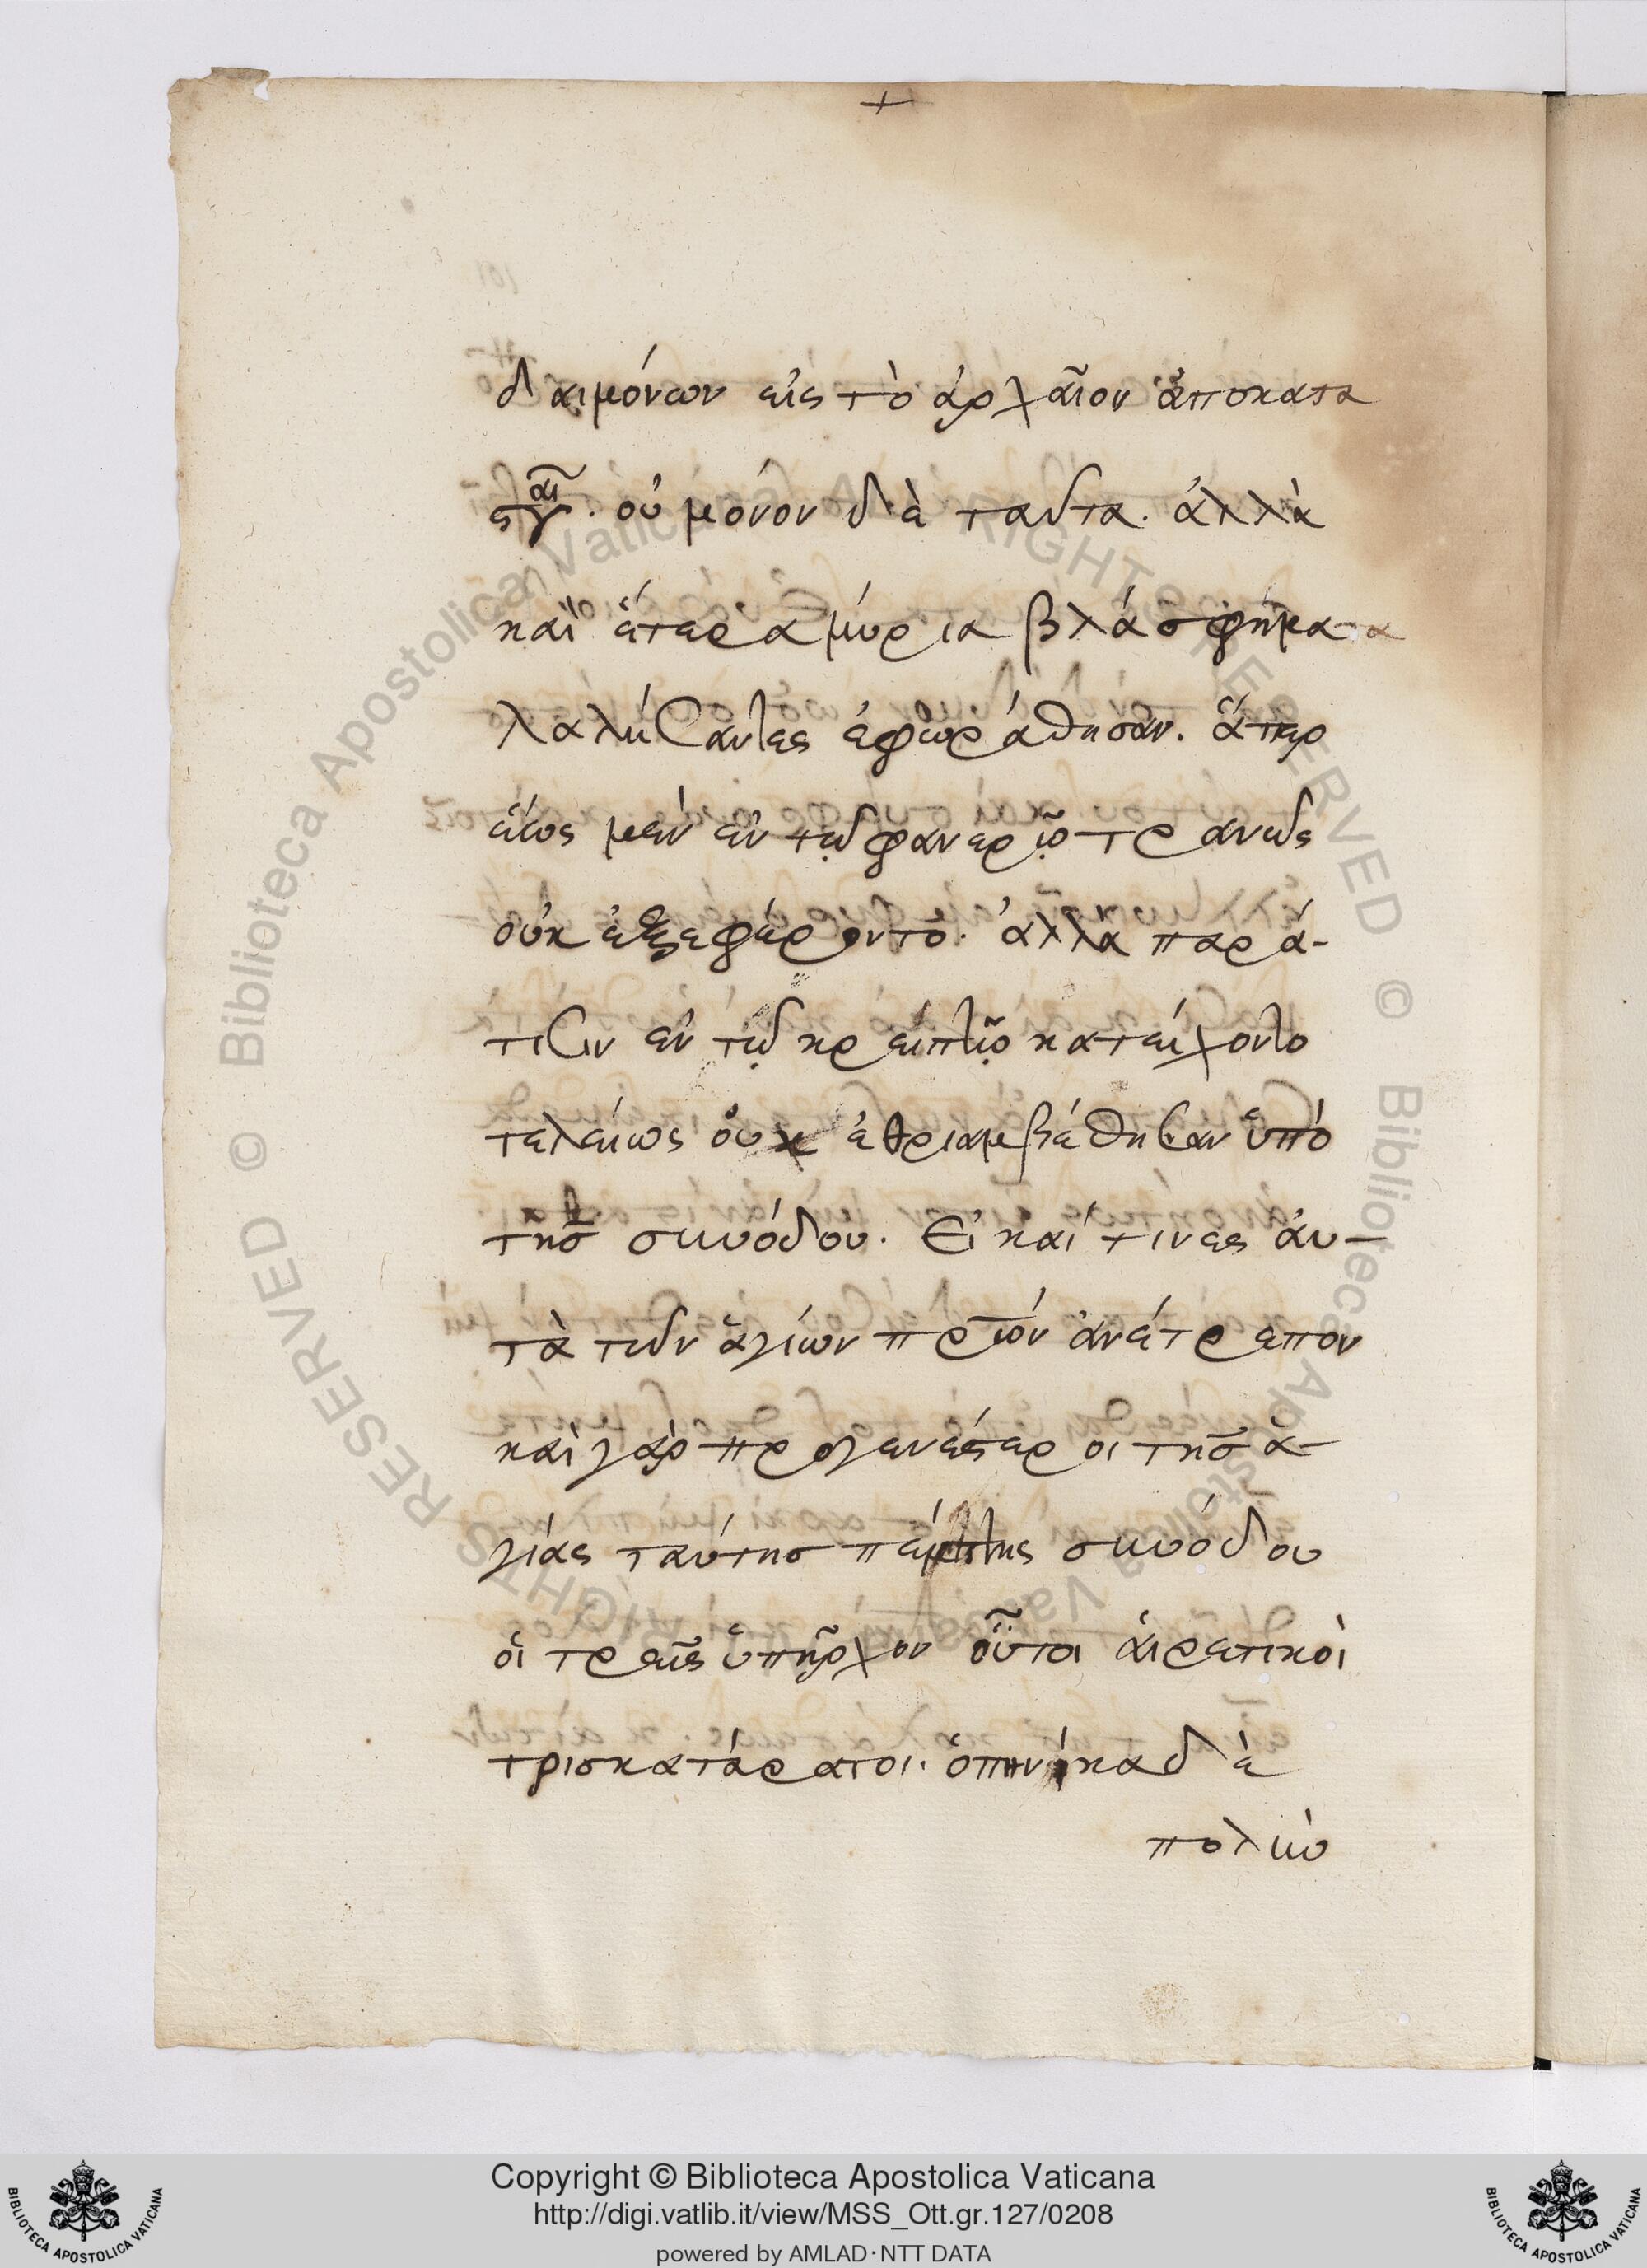 δαιμόνων εἰς τὸ ἀρχαῖον ἀποκατα
ςῆναι. οὐ μόνον διὰ ταῦτα. ἀλλὰ
καὶ ἕτερα μύρια βλάσφημα
λαλήσαντες ἐφωράθησαν. ἅπερ
ἕως μὲν ἐν τῷ φανερῷ τρανῶς
οὐκ ἐξεφέροντο. ἀλλὰ παρά-
τισιν ἐν τῷ κρυπτῷ κατείχοντο
τελείως οὐκ ἐθριαμβεύθησαν ὑπὸ
τῆσ συνόδου. Εἰ καί τινες αὐ-
τὰ τῶν ἁγίων πρων ἀνέτρεπον
καὶ γὰρ προγενέςεροι τῆσ ἁ-
γίας ταύτησ πέμπτης συνόδου
οἱ τρεῖς ὑπῆρχον οὗτοι αἱρετικοὶ
τρισκατάρατοι. ὁπηνίκα δὲ
πολὺ
Copyright © Biblioteca Apostolica Vaticana
http://digi.vatlib.it/view/MSS_Ott.gr.127/0208
powered by AMLAD·NTT DATA
BIBLIOTECA APOSTOLICA VATICANA
BIBLIOTECA APOSTOLICA VATICANA